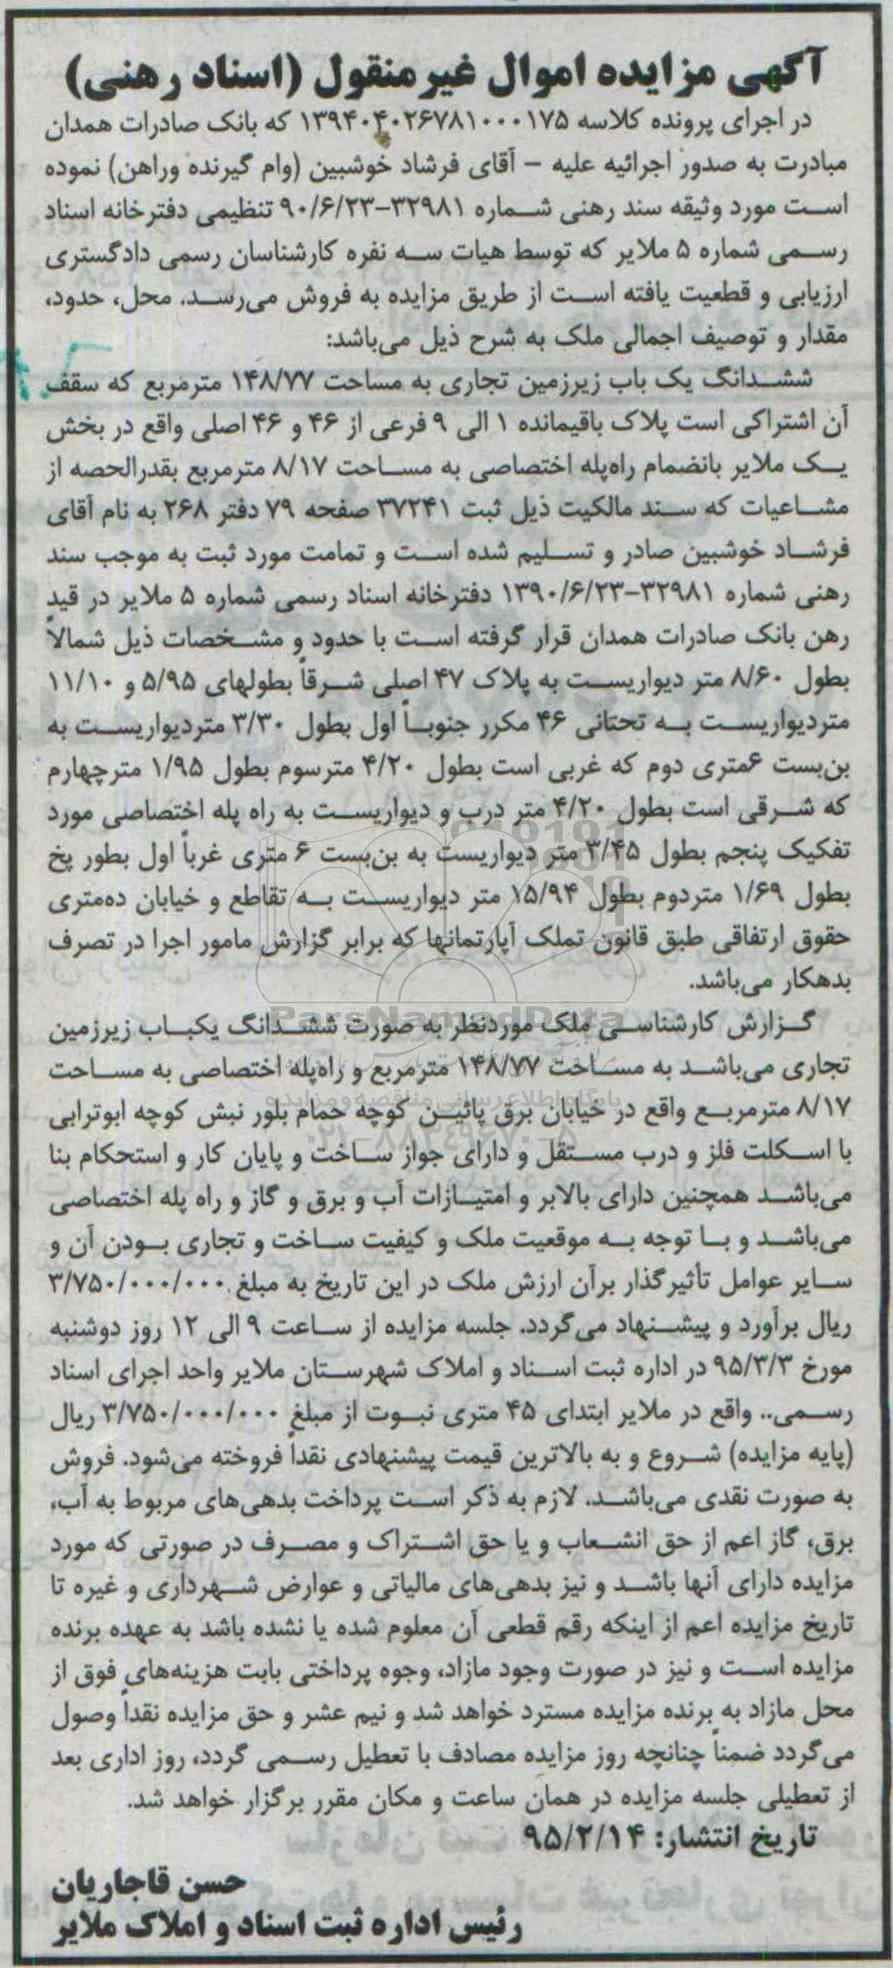 آگهی مزایده اموال غیرمنقول (اسناد رهنی)
در اجرای پرونده کلاسه ۱۳۹۴۰۴۰۲۶۷۸۱۰۰۰۱۷۵ که بانک صادرات همدان
مبادرت به صدور اجرائیه علیه – آقای فرشاد خوشبین (وام گیرنده وراهن) نموده
است مورد وثیقه سند رهنی شماره ۳۲۹۸۱-۹۰/۶/۲۳ تنظیمی دفترخانه اسناد
رسمی شماره ۵ ملایر که توسط هیات سه نفره کارشناسان رسمی دادگستری
ارزیابی و قطعیت یافته است از طریق مزایده به فروش می‌رسد. محل، حدود،
مقدار و توصیف اجمالی ملک به شرح ذیل می‌باشد:
ششدانگ یک باب زیرزمین تجاری به مساحت ۱۴۸/۷۷ مترمربع که سقف
آن اشتراکی است پلاک باقیمانده ۱ الی ۹ فرعی از ۴۶ و ۴۶ اصلی واقع در بخش
یک ملایر بانضمام راه‌پله اختصاصی به مساحت ۸/۱۷ مترمربع بقدرالحصه از
مشاعیات که سند مالکیت ذیل ثبت ۳۷۲۴۱ صفحه ۷۹ دفتر ۲۶۸ به نام آقای
فرشاد خوشبین صادر و تسلیم شده است و تمامت مورد ثبت به موجب سند
رهنی شماره ۳۲۹۸۱-۱۳۹۰/۶/۲۳ دفترخانه اسناد رسمی شماره ۵ ملایر در قید
رهن بانک صادرات همدان قرار گرفته است با حدود و مشخصات ذیل شمالاً
بطول ۸/۶۰ متر دیواریست به پلاک ۴۷ اصلی شرقاً بطولهای ۵/۹۵ و ۱۱/۱۰
متردیواریست به تحتانی ۴۶ مکرر جنوباً اول بطول ۳/۳۰ متردیواریست به
بن‌بست ۶متری دوم که غربی است بطول ۴/۲۰ مترسوم بطول ۱/۹۵ مترچهارم
که شرقی است بطول ۴/۲۰ متر درب و دیواریست به راه پله اختصاصی مورد
تفکیک پنجم بطول ۳/۴۵ متر دیواریست به بن‌بست ۶ متری غرباً اول بطور پخ
بطول ۱/۶۹ متردوم بطول ۱۵/۹۴ متر دیواریست به تقاطع و خیابان ده‌متری
حقوق ارتفاقی طبق قانون تملک آپارتمانها که برابر گزارش مامور اجرا در تصرف
بدهکار می‌باشد.
ParsNamadData
گزارش کارشناسی ملک موردنظر به صورت ششدانگ یکباب زیرزمین
تجاری می‌باشد به مساحت ۱۴۸/۷۷ مترمربع و راه‌پله اختصاصی به مساحت
پایگاه اطلاع رسانی مناقصه و مزایده
۸/۱۷ مترمربع واقع در خیابان برق پائین کوچه حمام بلور نبش کوچه ابوترابی
۰۲۱-۸۸۳۴۹۶۷۰-۵
با اسکلت فلز و درب مستقل و دارای جواز ساخت و پایان کار و استحکام بنا
می‌باشد همچنین دارای بالابر و امتیازات آب و برق و گاز و راه پله اختصاصی
می‌باشد و با توجه به موقعیت ملک و کیفیت ساخت و تجاری بودن آن و
سایر عوامل تأثیرگذار برآن ارزش ملک در این تاریخ به مبلغ ۳/۷۵۰/۰۰۰/۰۰۰
ریال برآورد و پیشنهاد می‌گردد. جلسه مزایده از ساعت ۹ الی ۱۲ روز دوشنبه
مورخ ۹۵/۳/۳ در اداره ثبت اسناد و املاک شهرستان ملایر واحد اجرای اسناد
رسمی.. واقع در ملایر ابتدای ۴۵ متری نبوت از مبلغ ۳/۷۵۰/۰۰۰/۰۰۰ ریال
(پایه مزایده) شروع و به بالاترین قیمت پیشنهادی نقداً فروخته می‌شود. فروش
به صورت نقدی می‌باشد. لازم به ذکر است پرداخت بدهی‌های مربوط به آب،
برق، گاز اعم از حق انشعاب و یا حق اشتراک و مصرف در صورتی که مورد
مزایده دارای آنها باشد و نیز بدهی‌های مالیاتی و عوارض شهرداری و غیره تا
تاریخ مزایده اعم از اینکه رقم قطعی آن معلوم شده یا نشده باشد به عهده برنده
مزایده است و نیز در صورت وجود مازاد، وجوه پرداختی بابت هزینه‌های فوق از
محل مازاد به برنده مزایده مسترد خواهد شد و نیم عشر و حق مزایده نقداً وصول
می‌گردد ضمناً چنانچه روز مزایده مصادف با تعطیل رسمی گردد، روز اداری بعد
از تعطیلی جلسه مزایده در همان ساعت و مکان مقرر برگزار خواهد شد.
تاریخ انتشار: ۹۵/۲/۱۴
حسن قاجاریان
رئیس اداره ثبت اسناد و املاک ملایر